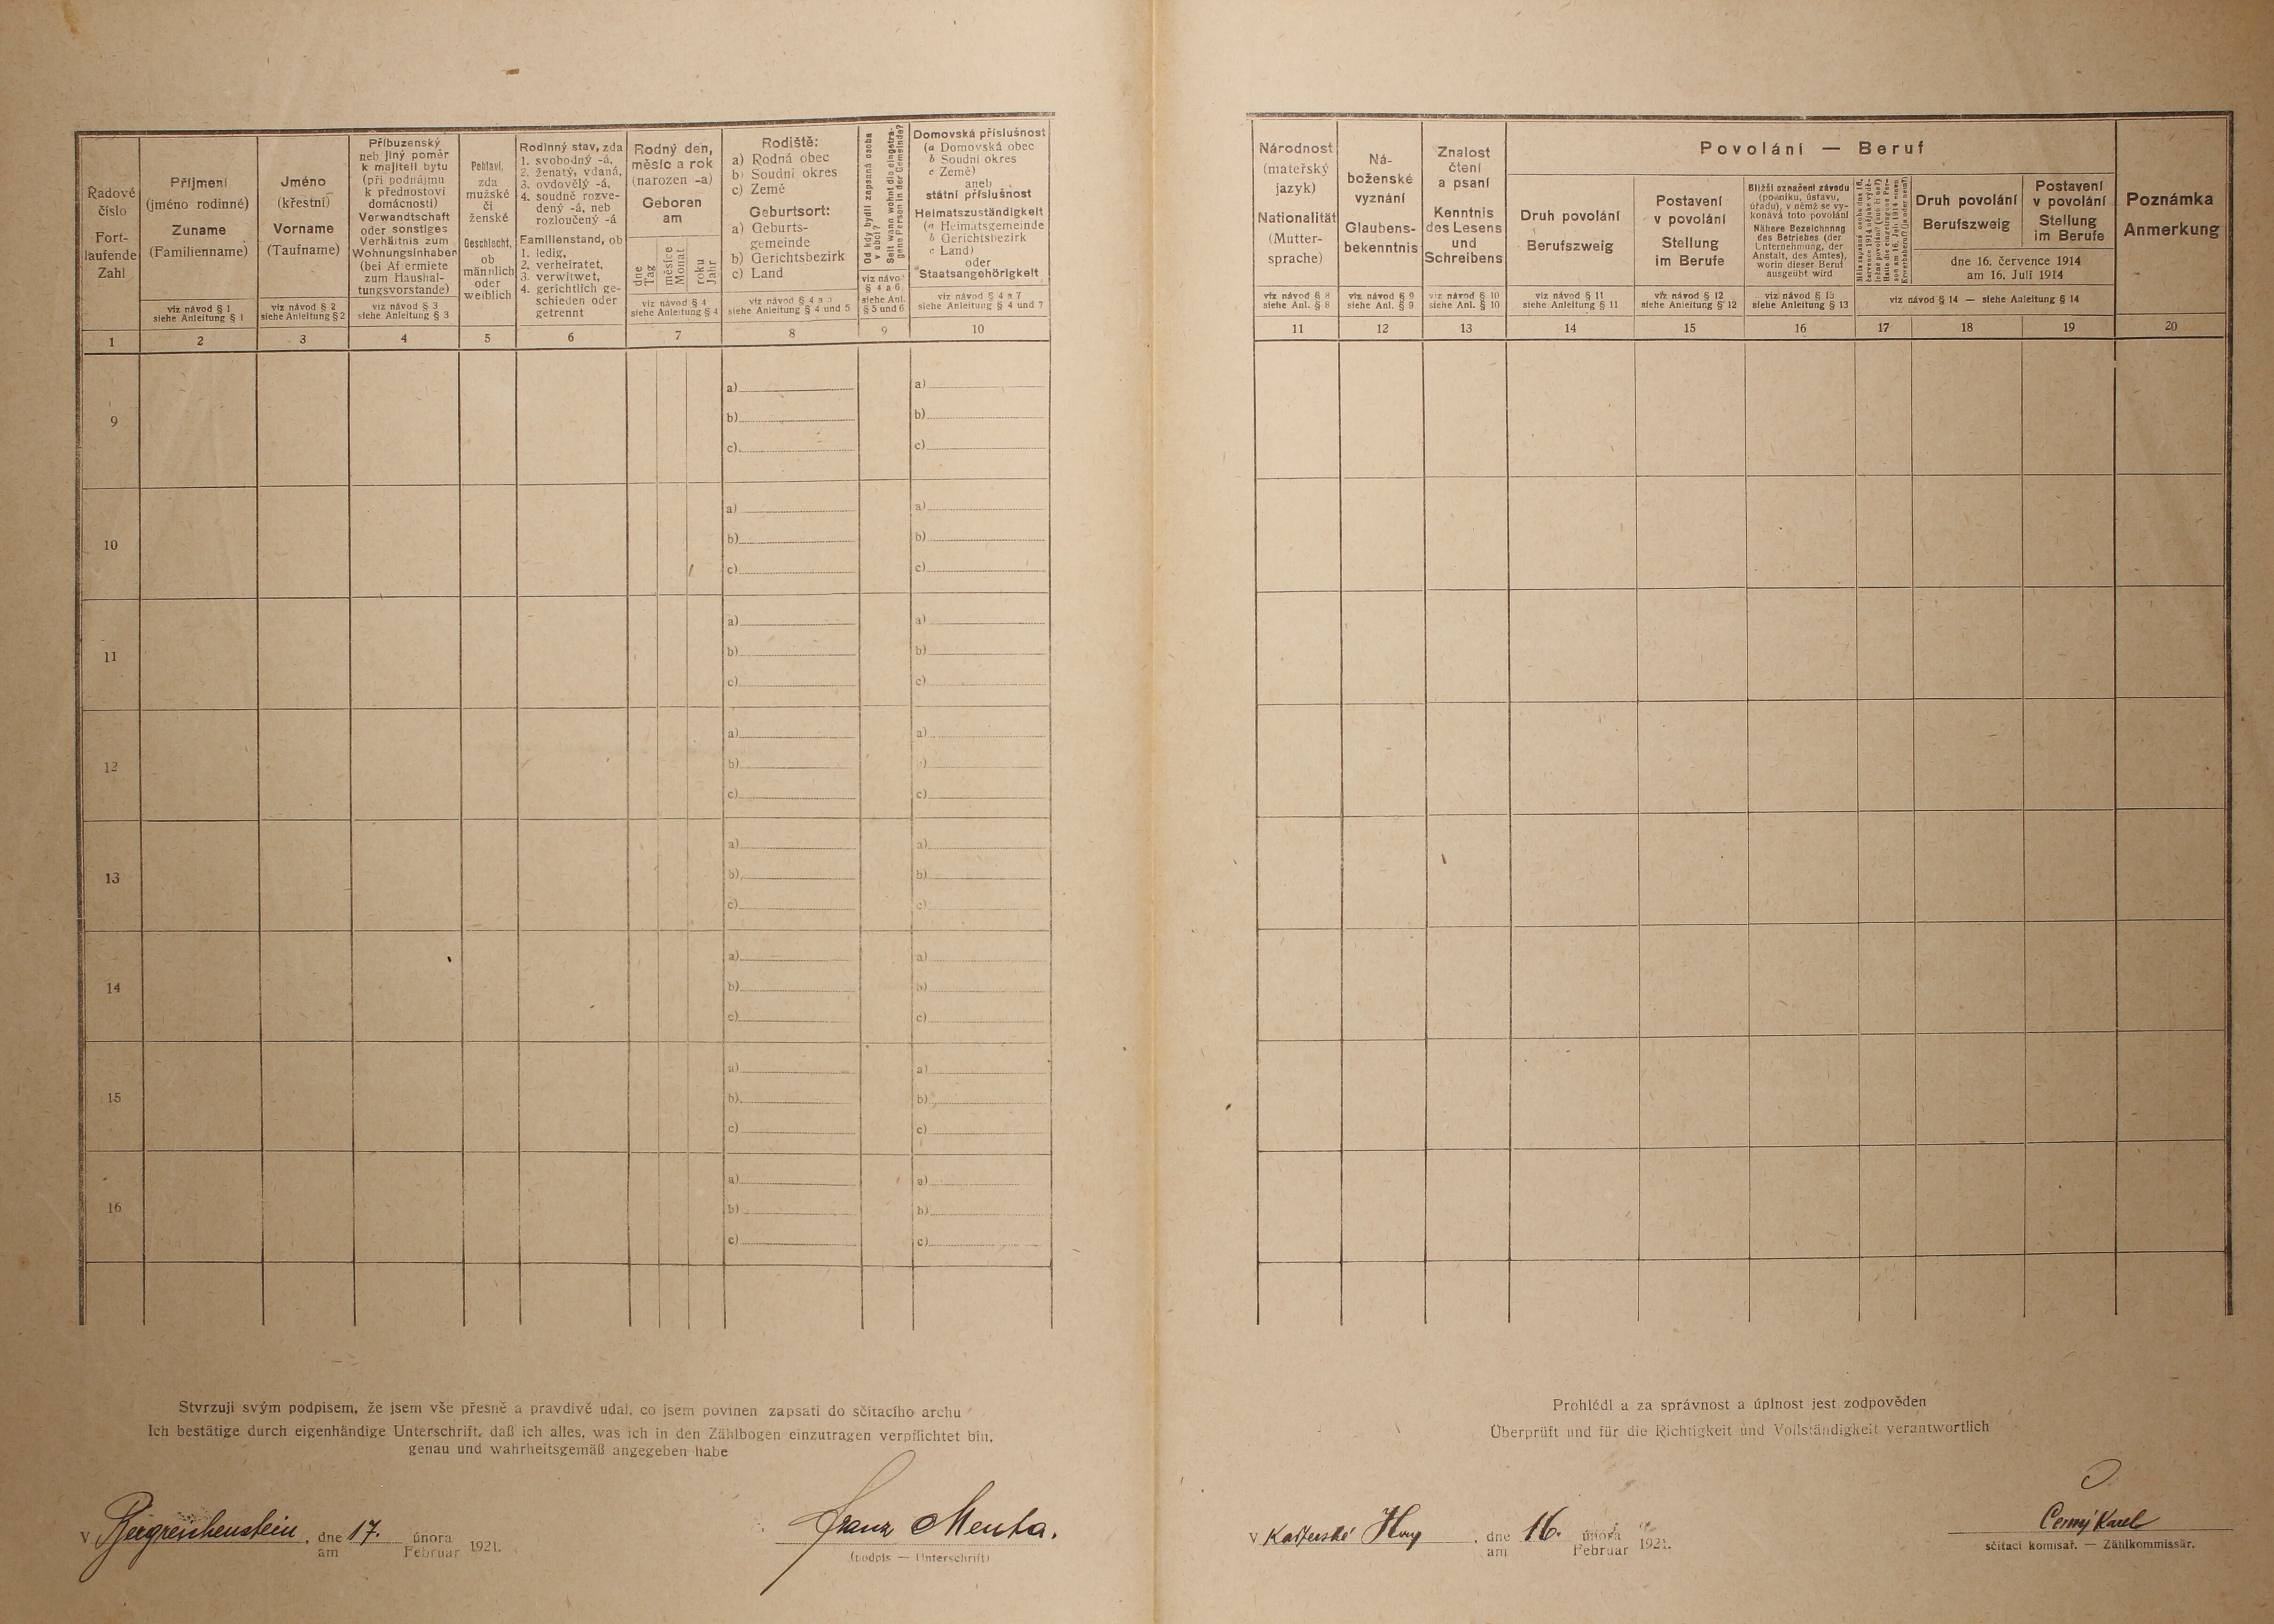 Řadové
číslo
Fort-
laufende
Zahl
1
Příjmení
(jméno rodinné)
Zuname
(Familienname)
viz návod § 1
siehe Anleitung § 1
2
Jméno
(křestní)
Vorname
(Taufname)
viz návod § 2
siehe Anleitung § 2
3
Příbuzenský
neb jiný poměr
k majiteli bytu
(při podnájmu
k přednostovi
domácnosti)
Verwandtschaft
oder sonstiges
Verhältnis zum
Wohnungsinhaber
(bei Aftermiete
zum Haushal-
tungsvorstande)
viz návod § 3
siehe Anleitung § 3
4
Pohlaví,
zda
mužské
či
ženské
Geschlecht,
ob
männlich
oder
weiblich
5
Rodinný stav, zda
1. svobodný -á,
2. ženatý, vdaná,
3. ovdovělý -á,
4. soudně rozve-
dený -á, neb
rozloučený -á
Familienstand, ob
1. ledig,
2. verheiratet,
3. verwitwet,
4. gerichtlich ge-
schieden oder
getrennt
6
Rodný den,
měsíc a rok
(narozen -a)
Geboren
am
dne
Tag
měsíce
Monat
roku
Jahr
viz návod § 4
siehe Anleitung § 4
7
Rodiště:
a) Rodná obec
b) Soudní okres
c) Země
Geburtsort:
a) Geburts-
gemeinde
b) Gerichtsbezirk
c) Land
viz návod § 4 a 5
siehe Anleitung § 4 und 5
8
Od kdy bydlí zapsaná osoba
v obci?
Seit wann wohnt die eingetra-
gene Person in der Gemeinde?
viz návod
§ 4 a 6
siehe Anl.
§ 5 und 6
9
Domovská příslušnost
(a Domovská obec
b Soudní okres
c Země)
aneb
státní příslušnost
Heimatszuständigkeit
(a Heimatsgemeinde
b Gerichtsbezirk
c Land)
oder
Staatsangehörigkeit
viz návod § 4 a 7
siehe Anleitung § 4 und 7
10
Národnost
(mateřský
jazyk)
Nationalität
(Mutter-
sprache)
viz návod § 8
siehe Anl. § 8
11
Ná-
boženské
vyznání
Glaubens-
bekenntnis
viz návod § 9
siehe Anl. § 9
12
Znalost
čtení
a psaní
Kenntnis
des Lesens
und
Schreibens
viz návod § 10
siehe Anl. § 10
13
Povolání — Beruf
Druh povolání
Berufszweig
viz návod § 11
siehe Anleitung § 11
14
Postavení
v povolání
Stellung
im Berufe
viz návod § 12
siehe Anleitung § 12
15
Bližší označení závodu
(podniku, ústavu,
úřadu), v němž se vy-
konává toto povolání
Nähere Bezeichnung
des Betriebes (der
Unternehmung, der
Anstalt, des Amtes),
worin dieser Beruf
ausgeübt wird
viz návod § 13
siehe Anleitung § 13
16
17
Druh povolání
Berufszweig
Postavení
v povolání
Stellung
im Berufe
dne 16. července 1914
am 16. Juli 1914
viz návod § 14 — siehe Anleitung § 14
18
19
Poznámka
Anmerkung
20
9
a)
a)
b)
b)
c)
c)
10
a)
a)
b)
b)
c)
c)
11
a)
a)
b)
b)
c)
c)
12
a)
a)
b)
b)
c)
c)
13
a)
a)
b)
b)
c)
c)
14
a)
a)
b)
b)
c)
c)
15
a)
a)
b)
b)
c)
c)
16
a)
a)
b)
b)
c)
c)
Stvrzuji svým podpisem, že jsem vše přesně a pravdivě udal, co jsem povinen zapsati do sčítacího archu
Ich bestätige durch eigenhändige Unterschrift, daß ich alles, was ich in den Zählbogen einzutragen verpflichtet bin,
genau und wahrheitsgemäß angegeben habe
V Bergreichenstein, dne 17. února 1921.
am Februar
Franz Menta.
(podpis — Unterschrift)
Prohlédl a za správnost a úplnost jest zodpověden
Überprüft und für die Richtigkeit und Vollständigkeit verantwortlich
V Kašperské Hory, dne 16. února 1921.
am Februar
Černý Karel
sčítací komisař. — Zählkommissär.